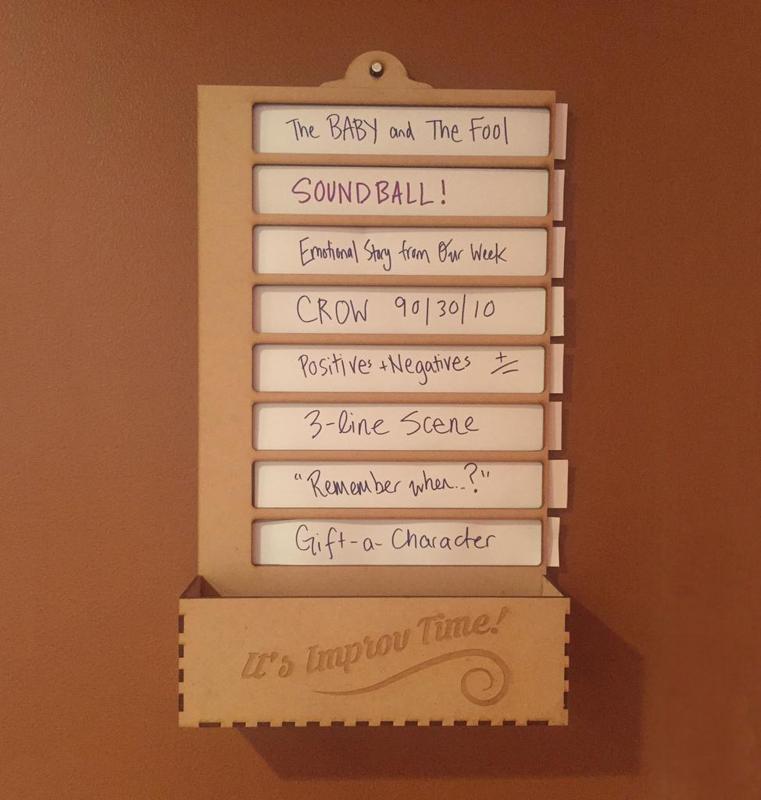 The BABY and The Fool
SOUNDBALL!
Emotional Story from Our Week
CROW 90/30/10
Positives + Negatives +/=
3-line Scene
"Remember when...?"
Gift-a-Character
It's Improv Time!